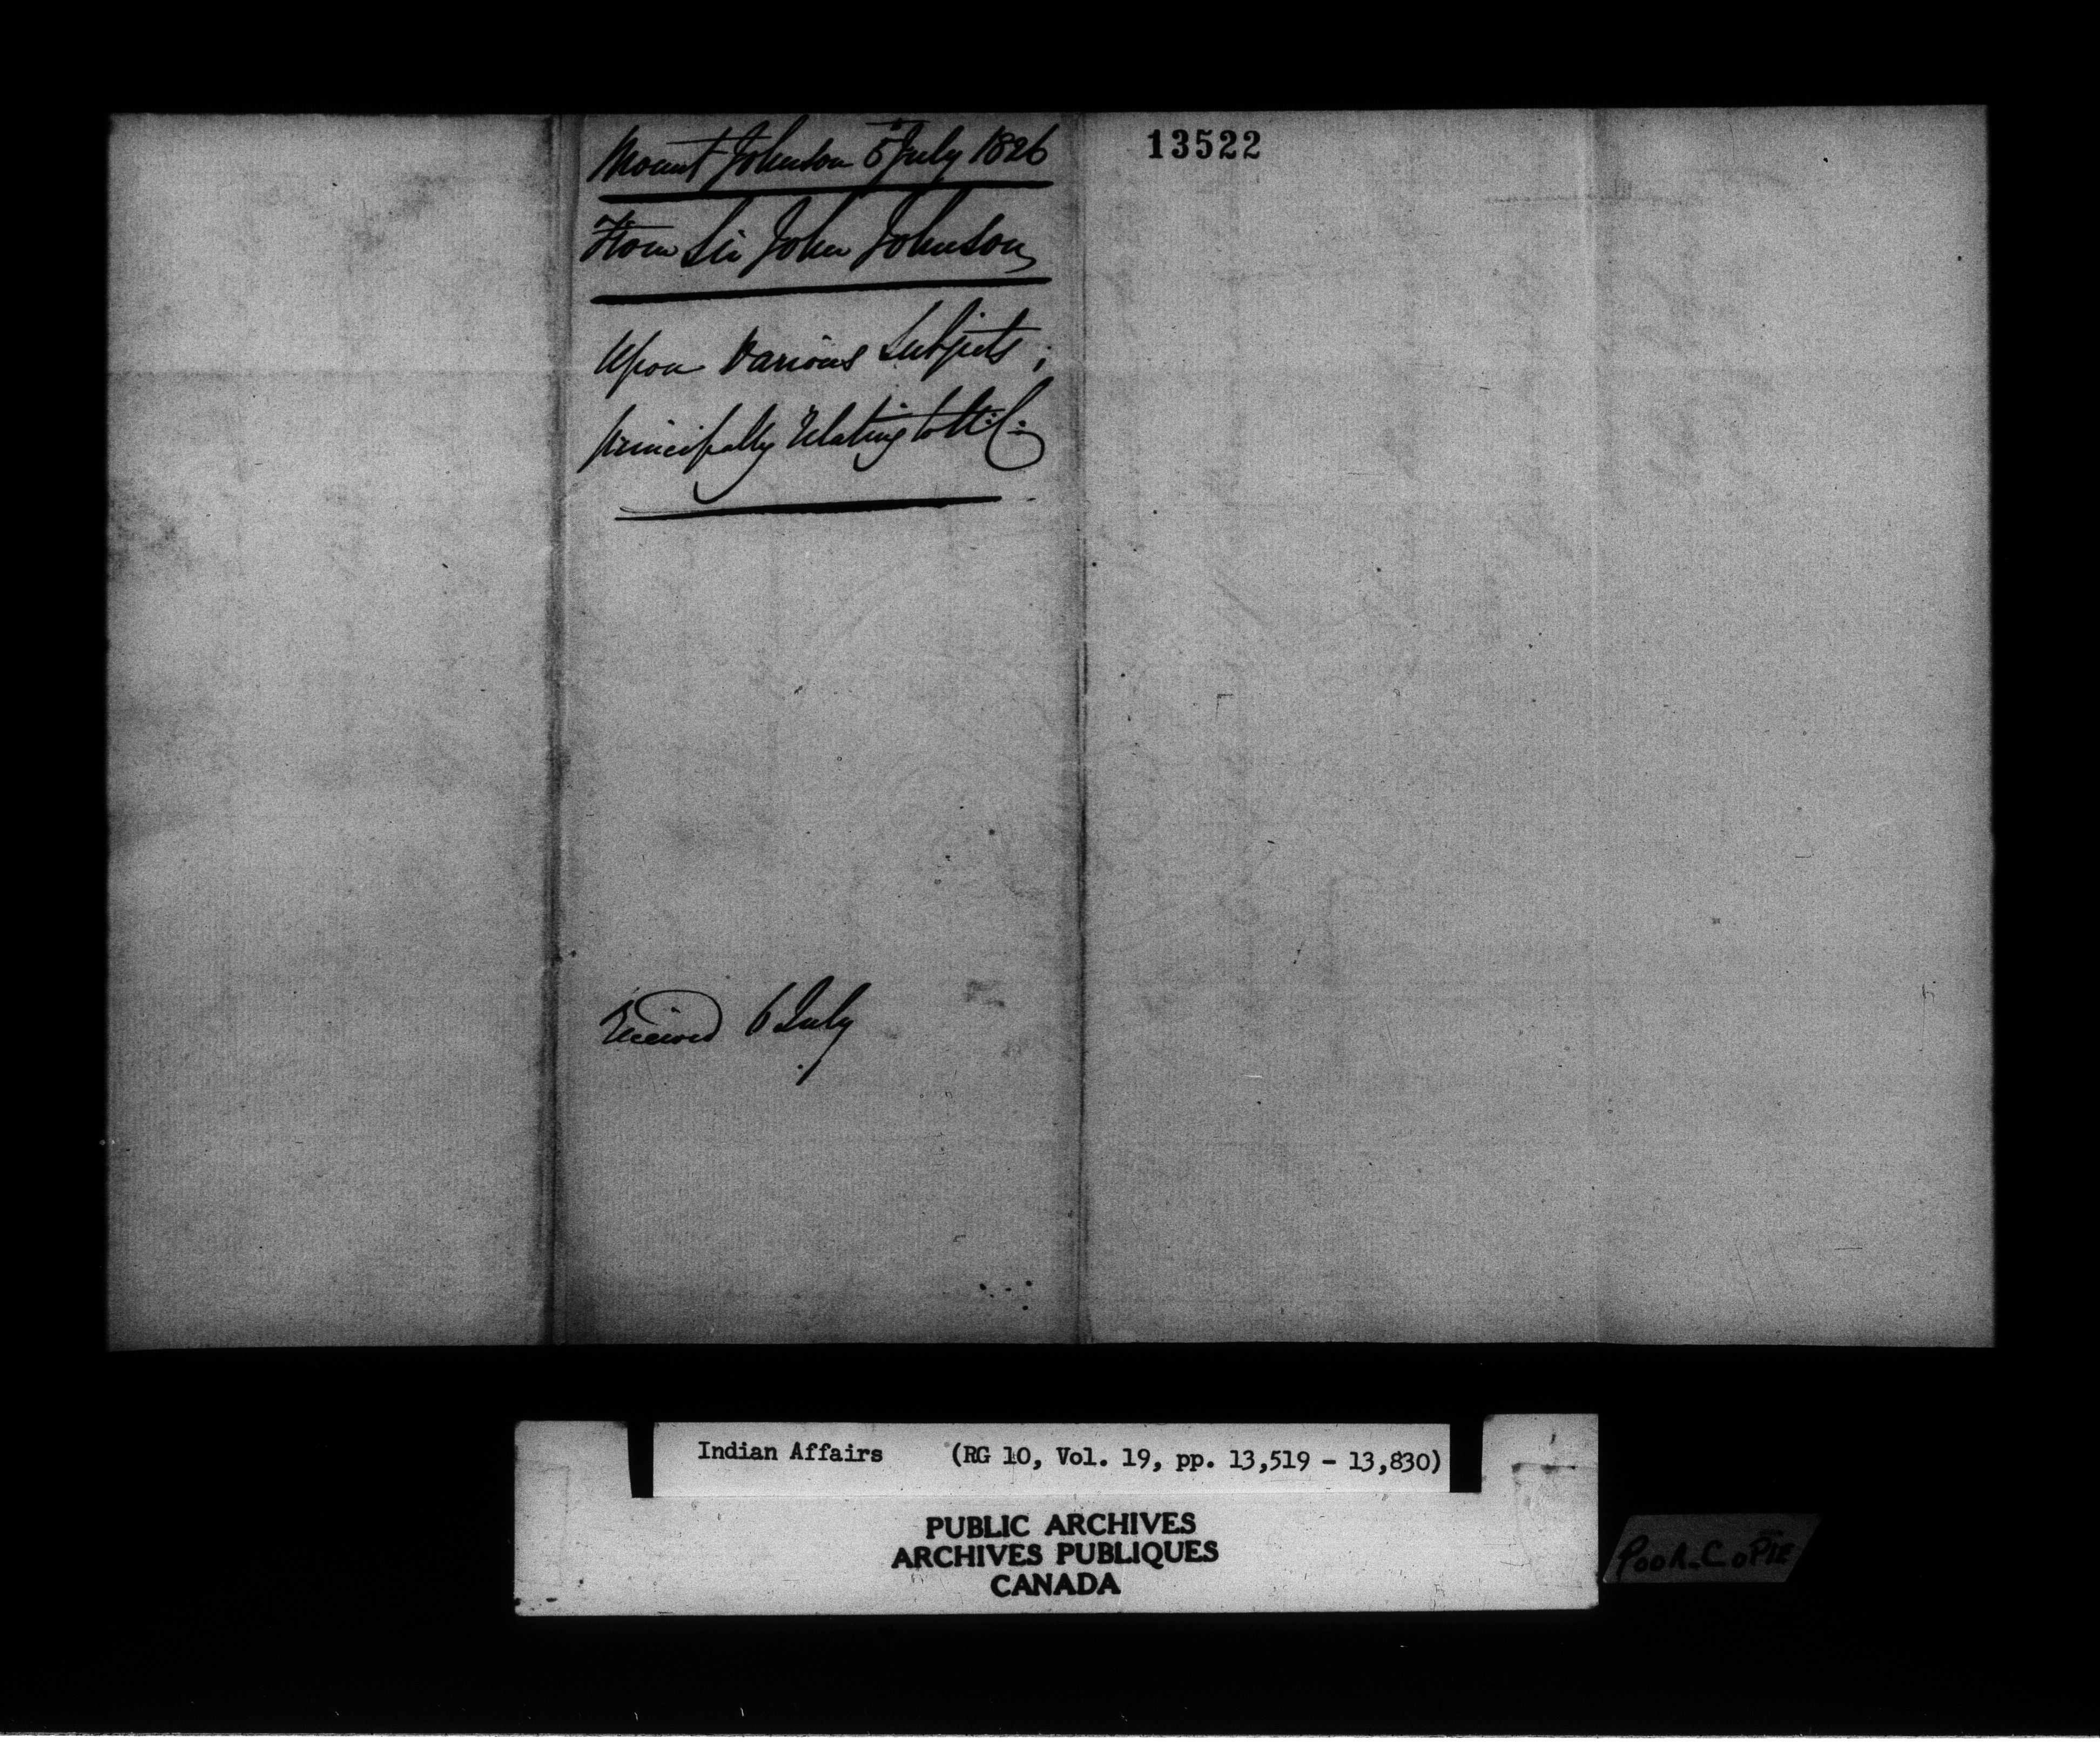 Mount Johnson 5 July 1826
13522
From Sir John Johnson
Upon Various Subjects;
principally relating to U:C:
Received 6 July
Indian Affairs (RG 10, Vol. 19, pp. 13,519 - 13,830)
PUBLIC ARCHIVES
ARCHIVES PUBLIQUES
CANADA
POOR_COPIE